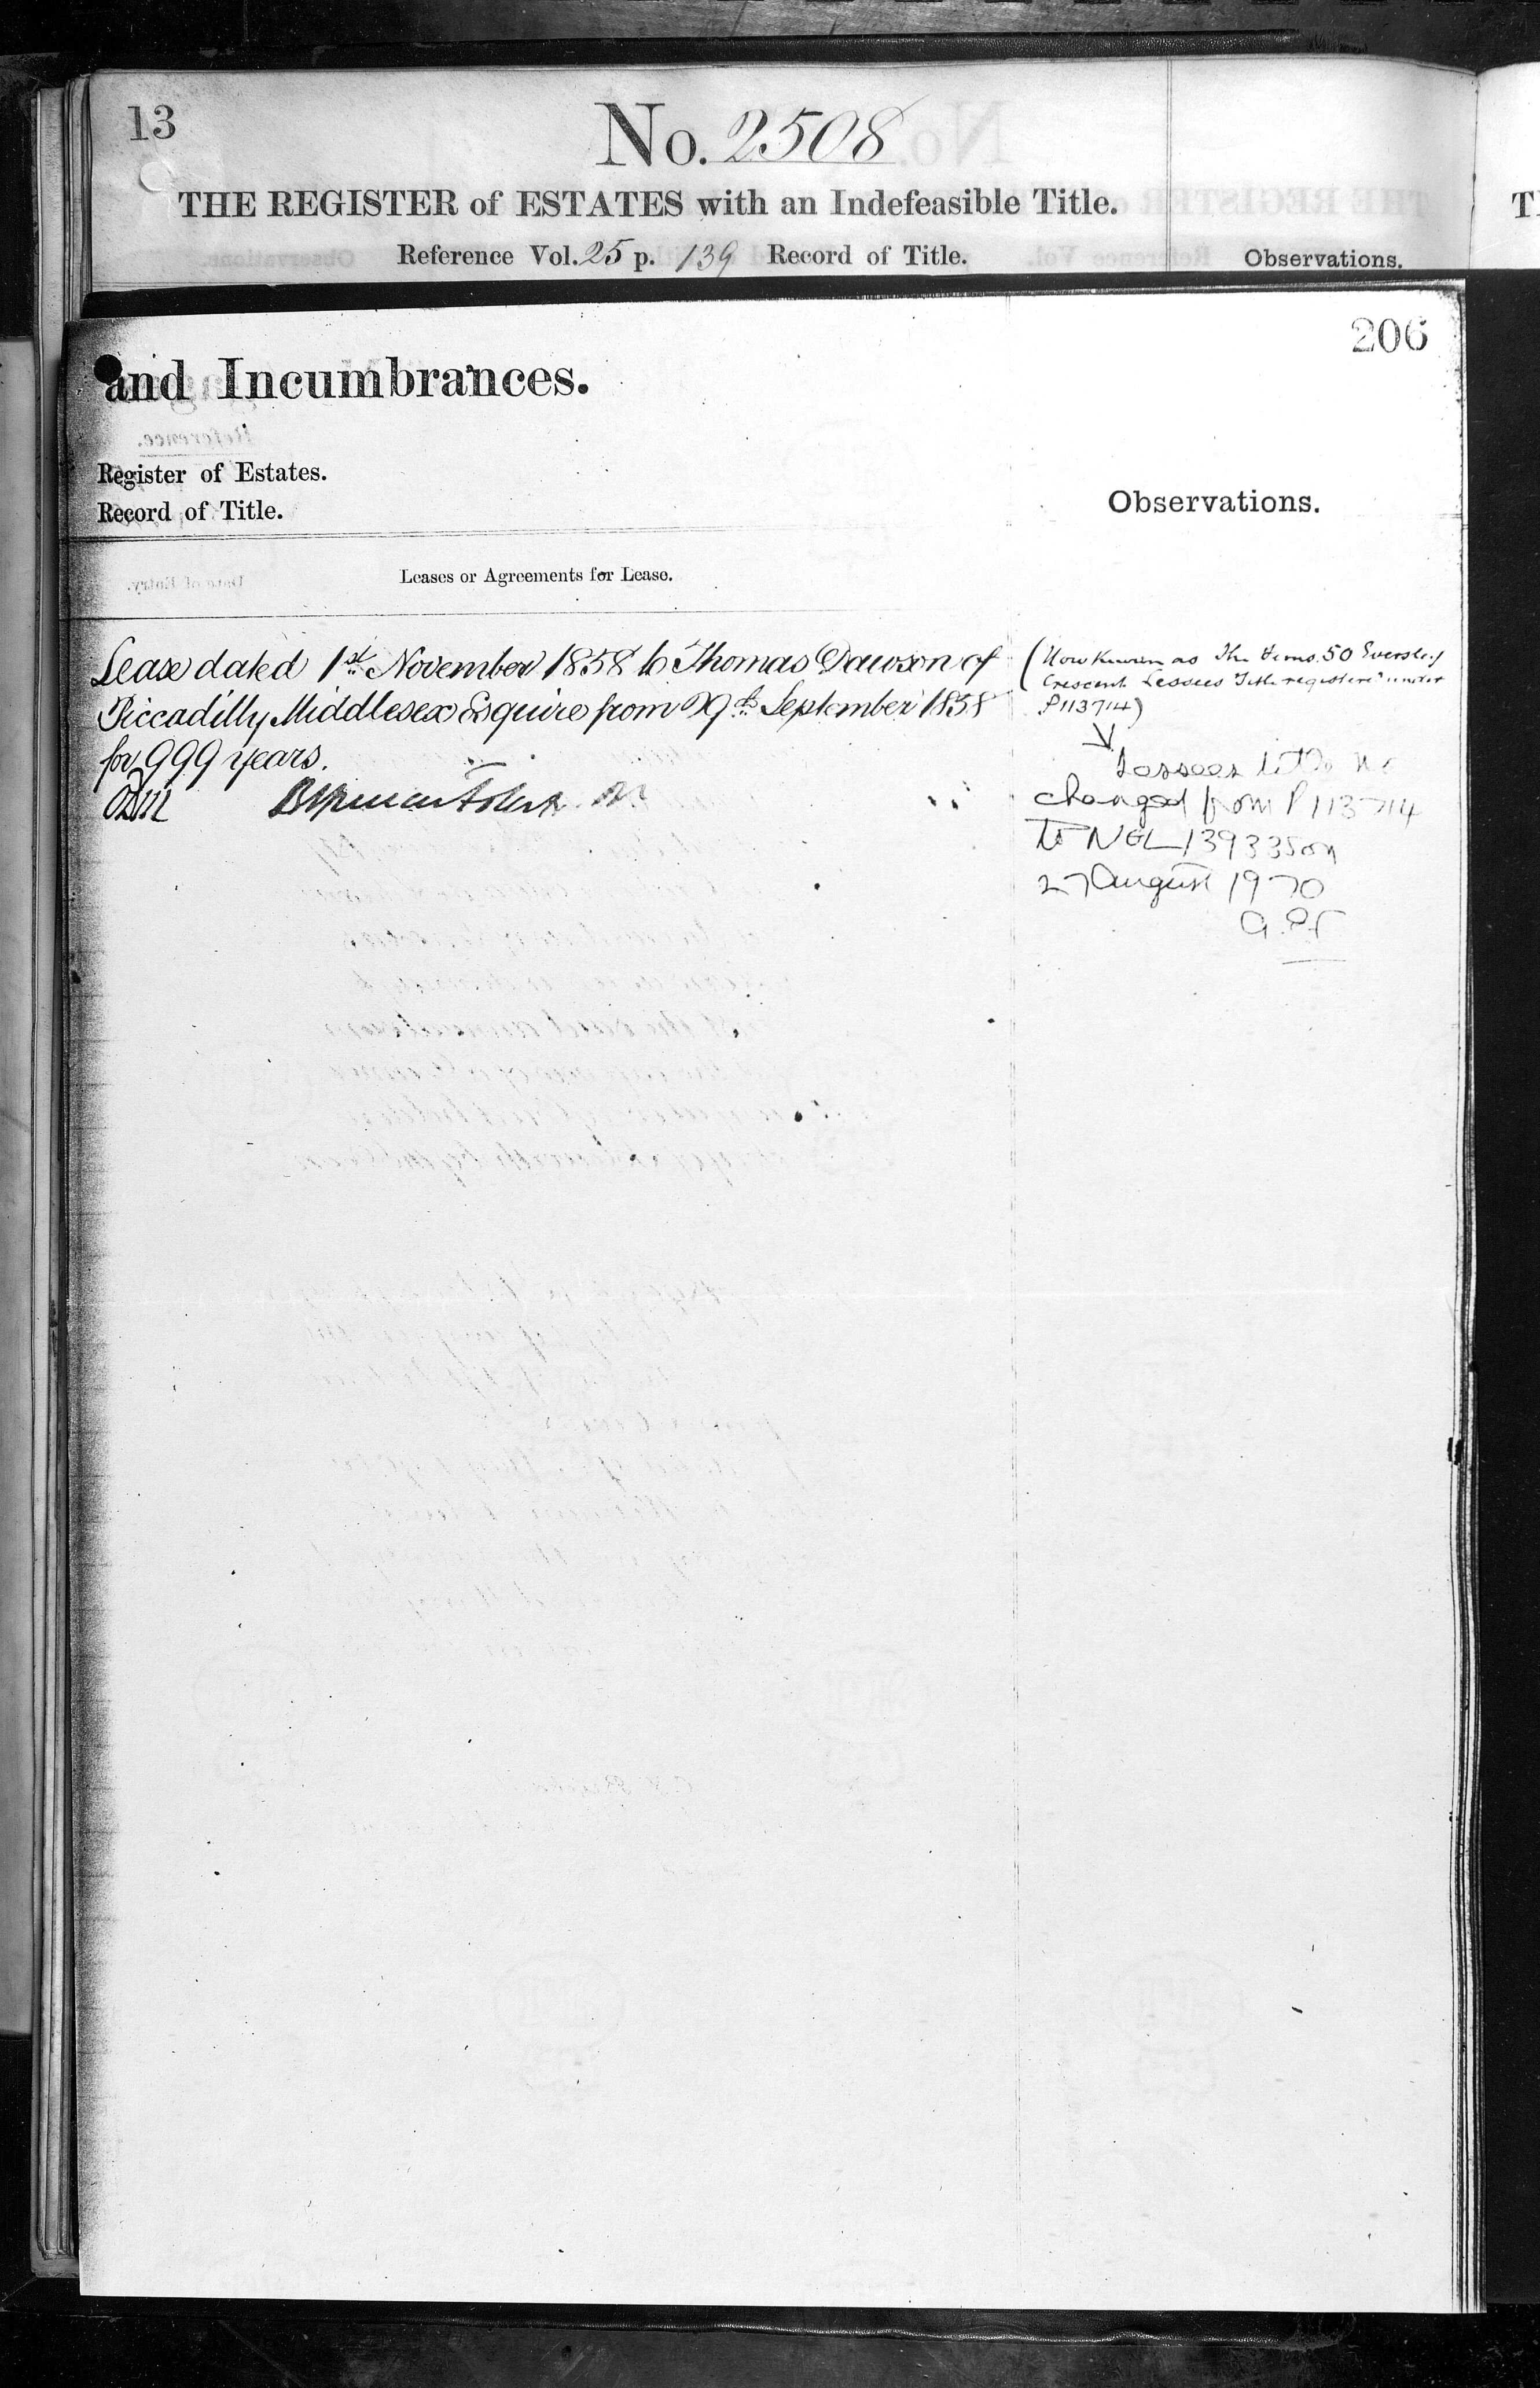 13
No. 2508
THE REGISTER of ESTATES with an Indefeasible Title.
Reference Vol. 25 p. 139 Record of Title.
Observations.
206
and Incumbrances.
Register of Estates.
Record of Title.
Observations.
Leases or Agreements for Lease.
Lease dated 1st November 1858 to Thomas Dawson of
Piccadilly Middlesex Esquire from 29th September 1858
for 999 years.
(Now known as The 50 Eversley
Crescent Lessees Title registered under
P113714)
Lessees title No
changed from P113714
to NGL139335 on
27 August 1970